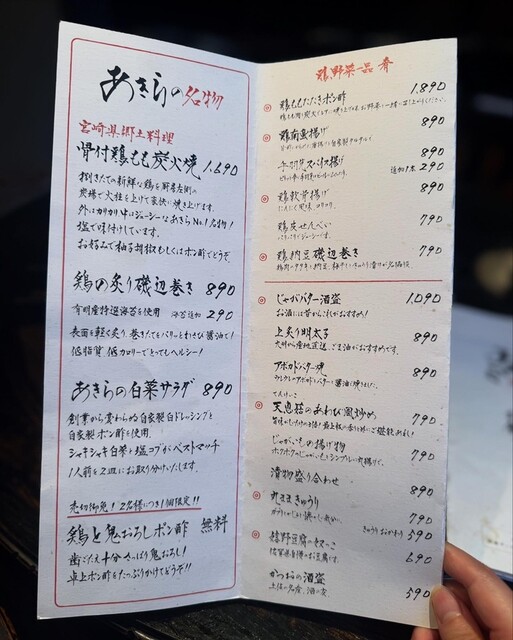 あきらの名物
宮崎県郷土料理
骨付鶏もも炭火焼 1.690
捌きたての新鮮な鶏を厨房左側の
炭場で火柱を上げて豪快に焼き上げます。
外はカリカリ中はジューシーなあきらNo.1名物!
塩で味付けしています。
お好みで柚子胡椒もしくはポン酢でどうぞ。
鶏の炙り磯辺巻き 890
有明産特選海苔を使用 海苔追加 290
表面を軽く炙り巻きたてをパリッとわさび醤油で!
低脂質低カロリーでとってもヘルシー!
あきらの白菜サラダ 890
創業から変わらぬ自家製白ドレッシングと
自家製ポン酢を使用。
シャキシャキ白菜と塩コブがベストマッチ
1人前を2皿にお取り分けいたします。
売切御免!2名様につき1個限定!!
鶏と鬼おろしポン酢 無料
歯ごたえ十分さっぱり鬼おろし!
卓上ポン酢をたっぷりかけてどうぞ!!
鶏野菜一品 肴
鶏ももたたきポン酢 1.890
鶏南蛮揚げ 890
手羽先スパイス揚げ 890
追加1本 290
鶏軟骨揚げ 890
にんにく風味、コリコリ。
鶏皮せんべい 790
鶏納豆磯辺巻き 790
じゃがバター酒盗 1.090
お酒には昔からこれがおすすめ!
上炙り明太子 890
九州から産地直送、ごま油がおすすめです。
アボカドバター焼 890
天恵菇のあわび風炒め 790
じゃがいもの揚げ物 790
漬物盛り合わせ 890
きゅうり 790
きゅうりおかわり 390
嬉野豆腐 690
佐賀県自慢のお豆腐です。
かつおの酒盗 590